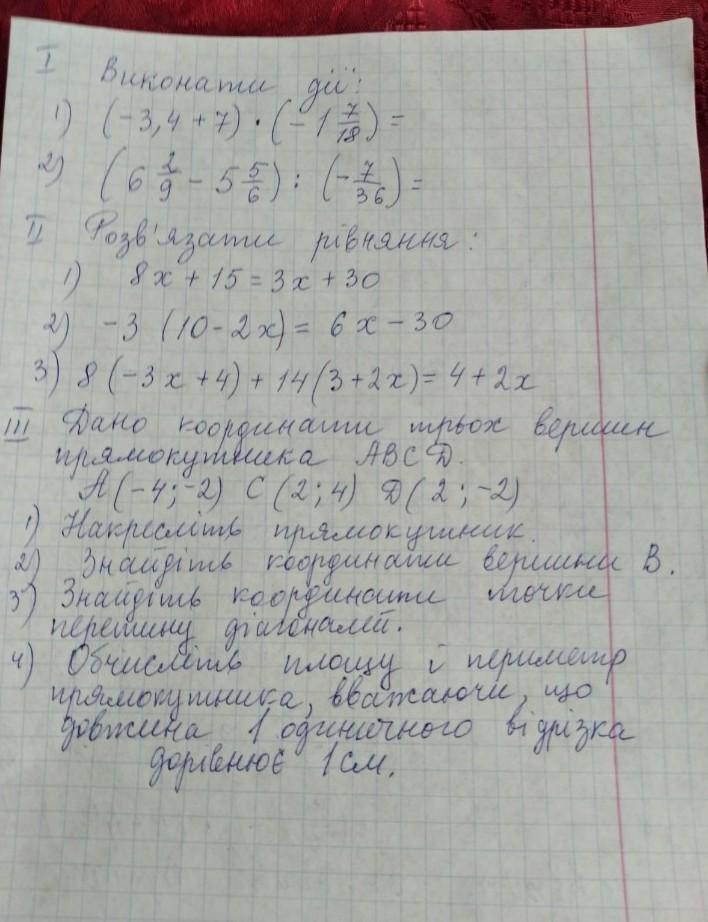 I Виконати дії:
1) (-3,4 + 7) · (-1 7/18) =
2) (6 2/9 - 5 5/6) : (-7/36) =
II Розв'язати рівняння:
1) 8x + 15 = 3x + 30
2) -3 (10 - 2x) = 6x - 30
3) 8 (-3x + 4) + 14 (3 + 2x) = 4 + 2x
III Дано координати трьох вершин
прямокутника ABCD.
A (-4; -2) C (2; 4) D (2; -2)
1) Накресліть прямокутник.
2) Знайдіть координати вершини B.
3) Знайдіть координати точки
перетину діагоналей.
4) Обчисліть площу і периметр
прямокутника, вважаючи, що
довжина 1 одиничного відрізка
дорівнює 1 см.